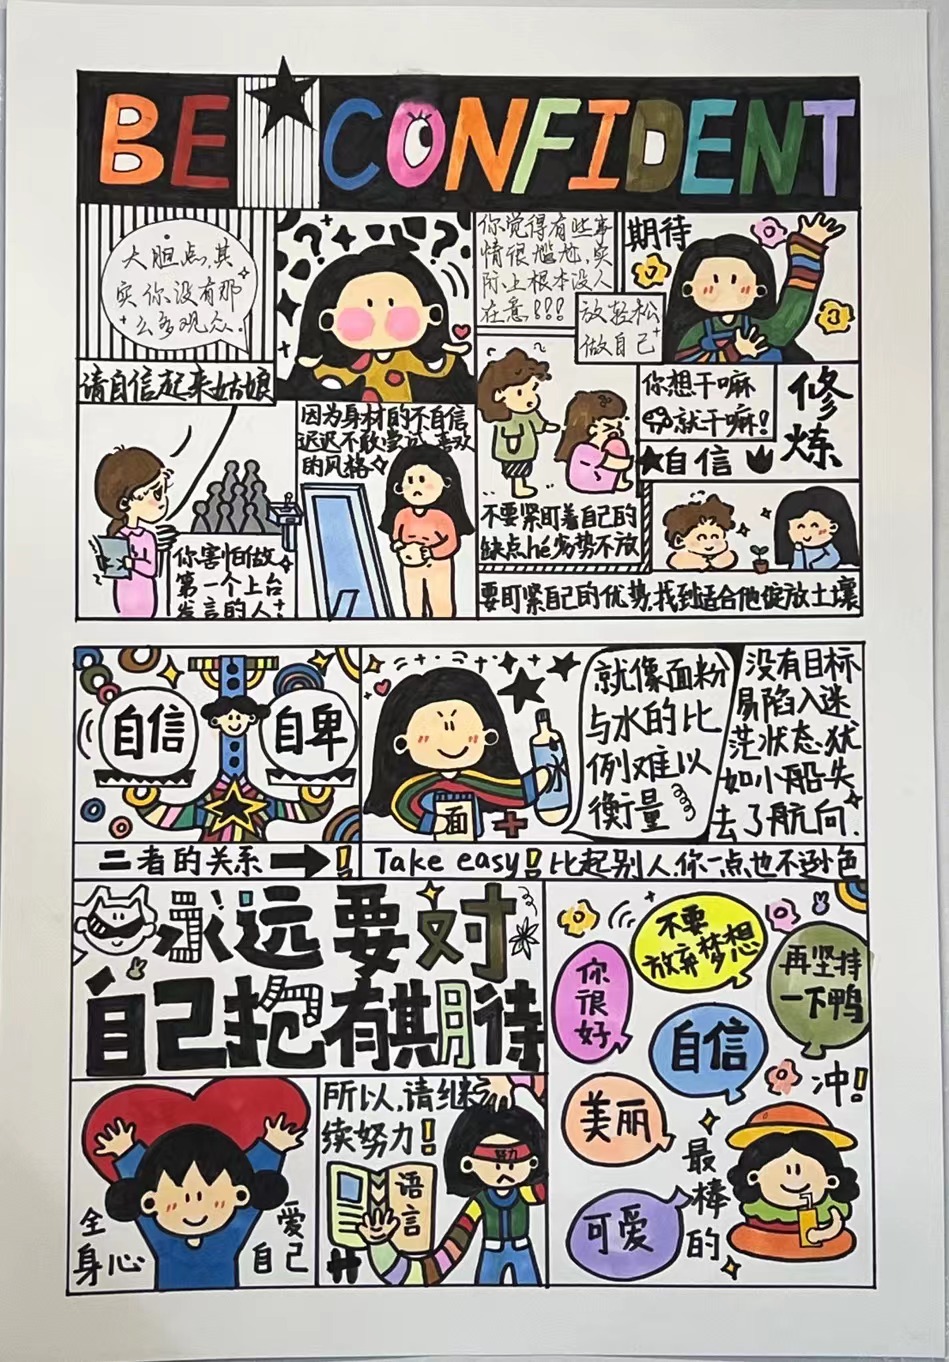 BE CONFIDENT
大胆点,其
实你没有那
么多观众.
请自信起来姑娘
你觉得有些事
情很尴尬,实
际上根本没人
在意!!!
放轻松
做自己
期待
你害怕做
第一个上台
发言的人
因为身材的不自信
迟迟不敢尝试喜欢
的风格
不要紧盯着自己的
缺点hé劣势不放
你想干嘛
就干嘛!
修炼
自信
要盯紧自己的优势,找到适合他绽放土壤
自信
自卑
二者的关系
!
面
就像面粉
与水的比
例难以
衡量
没有目标
易陷入迷
茫状态,犹
如小船失
去了航向.
Take easy!比起别人,你一点也不逊色
永远要对
自己抱有期待
不要
放弃梦想
你很好
再坚持
一下鸭
自信
美丽
冲!
可爱
最棒的
全身心
爱自己
所以,请继
续努力!
努力
语言